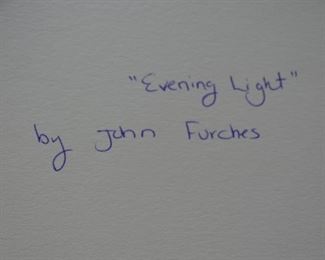 "Evening Light"
by John Furches